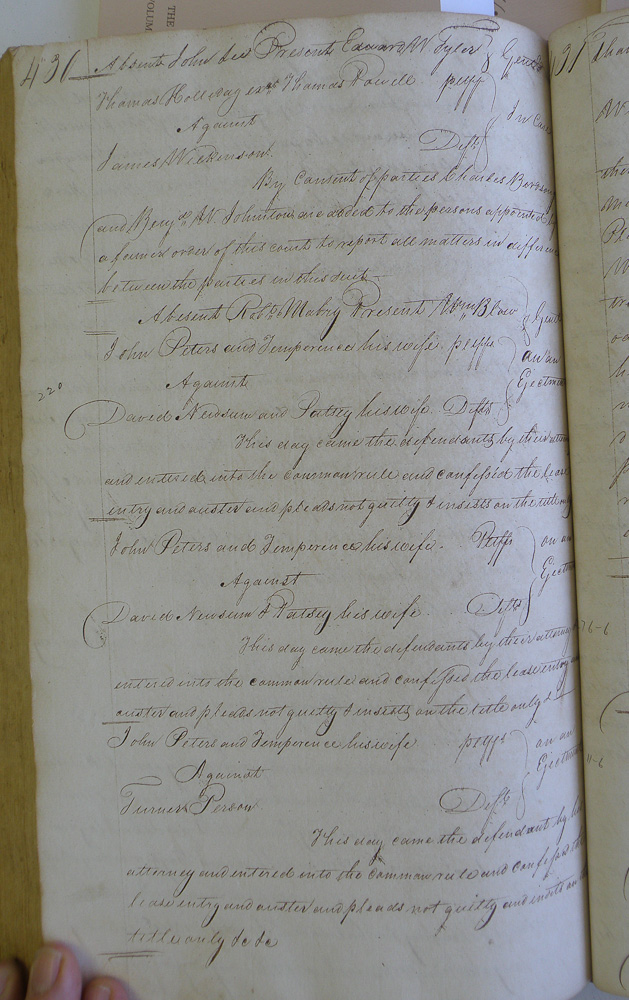 THE
VOLUM
431 Absent John Present Edward W Tyler Gent
Thomas Holliday exr Thomas Powell pltff
Against In Case
James Wilkinson Deft
By Consent of parties Charles
and Benja W. Johnston are added to the persons appointed
a former order of this court to report all matters in differen
between the parties in this suit
Absent Robt Mabry Present Wm Blow Gent
John Peters and Temperence his wife pltffs
Against on an
Ejectm
220
David Newsum and Patsey his wife. Defts
This day came the defendants by their attor
and entered into the common rule and confessed the lease
entry and auster and pleads not guilty & insists on the title only
John Peters and Temperence his wife. Pltffs on an
Against Eject
David Newsum & Patsey his wife Defts
This day came the defendants by their attorney
entered into the common rule and confessed the lease entry
auster and pleads not guilty & insists on the title only &
John Peters and Temperence his wife pltffs on an
Against Eject
11-6
Turner Person Deft
This day came the defendant by his
attorney and entered into the common rule and confessed the
lease entry and auster and pleads not guilty and insists on the
title only &c &c